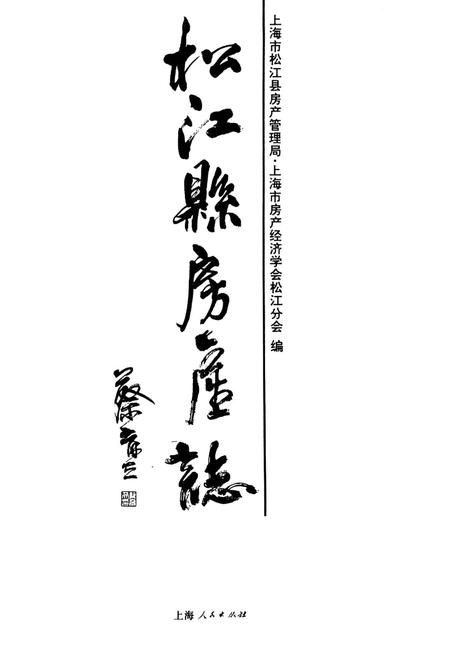 上海市松江县房产管理局·上海市房产经济学会松江分会 编
松江縣房產誌
上海人民出版社